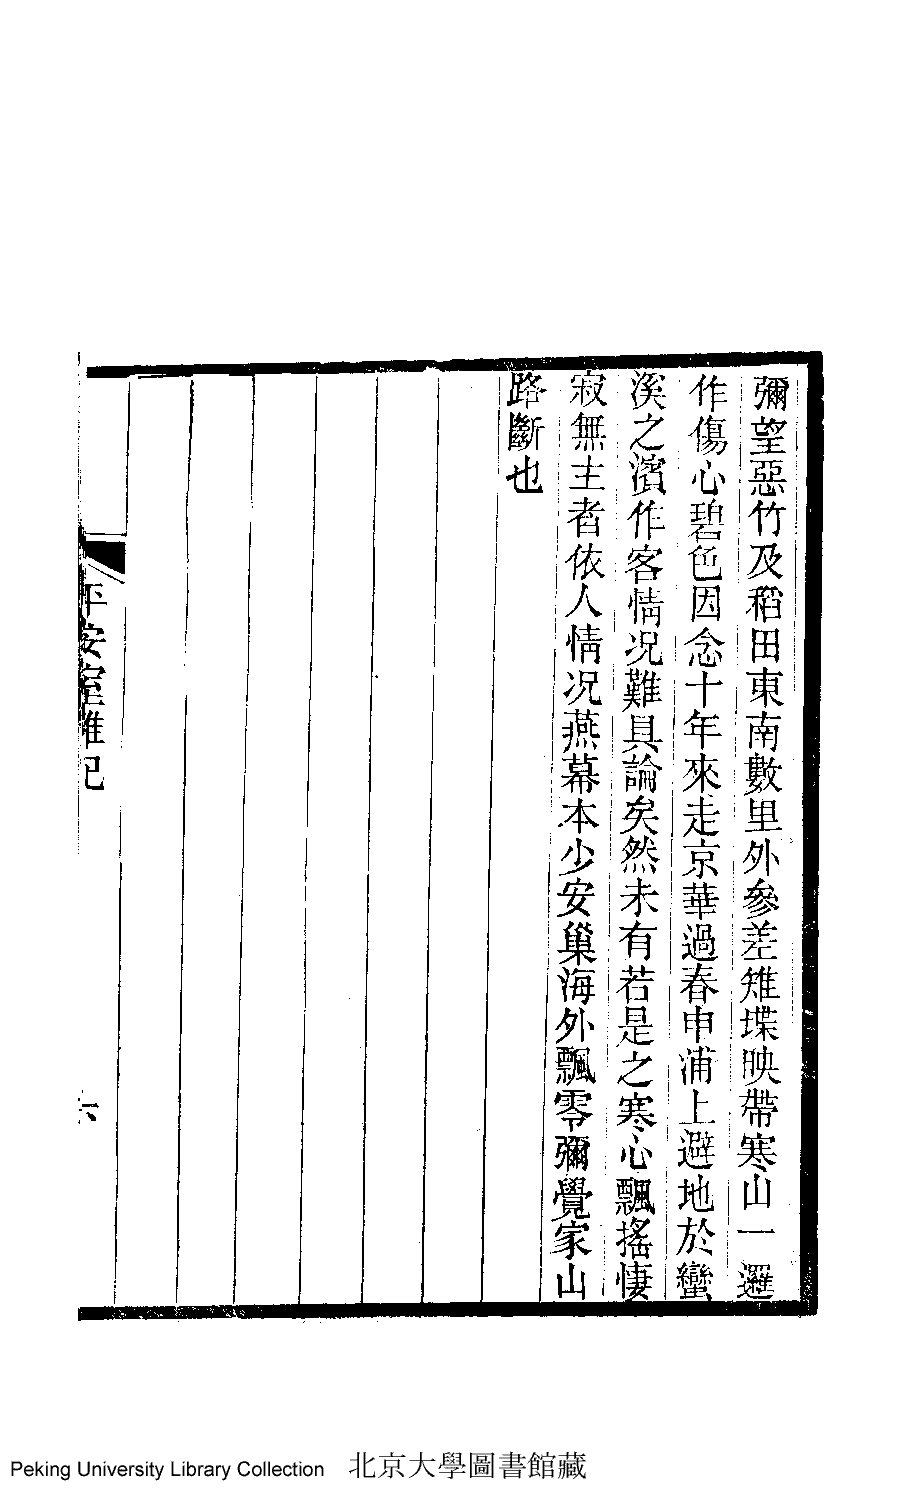 彌望惡竹及稻田東南數里外參差雉堞映帶寒山一邏
作傷心碧色因念十年來走京華過春申浦上避地於蠻
溪之濱作客情况難具論矣然未有若是之寒心飄搖悽
寂無主者依人情况燕幕本少安巢海外飄零彌覺家山
路斷也
平安室雜記
六
Peking University Library Collection 北京大學圖書館藏